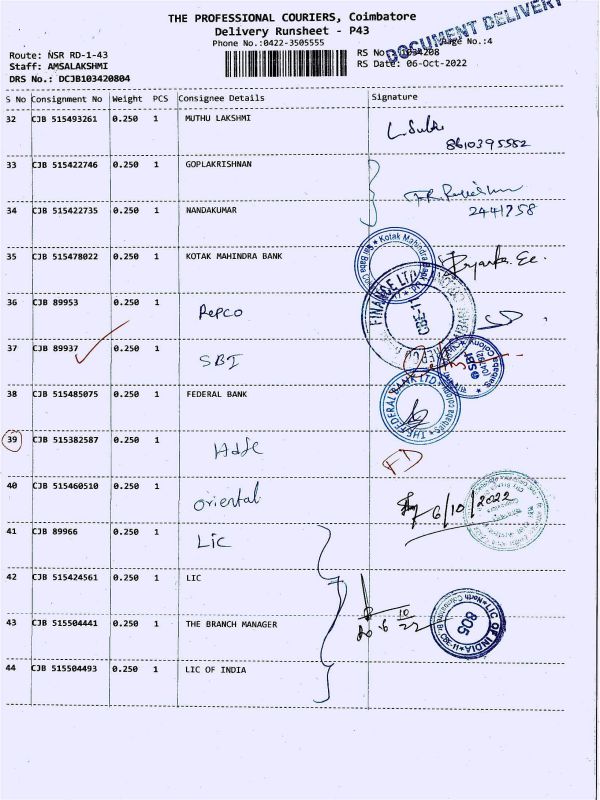 THE PROFESSIONAL COURIERS, Coimbatore
DOCUMENT DELIVERY
Delivery Runsheet - P43
Phone No.:0422-3505555
Page No.:4
Route: NSR RD-1-43
RS No.: 1034208
Staff: AMSALAKSHMI
RS Date: 06-Oct-2022
DRS No.: DCJB103420804
S No Consignment No Weight PCS Consignee Details Signature
32 CJB 515493261 0.250 1 MUTHU LAKSHMI
8610395582
33 CJB 515422746 0.250 1 GOPLAKRISHNAN
34 CJB 515422735 0.250 1 NANDAKUMAR
2441758
35 CJB 515478022 0.250 1 KOTAK MAHINDRA BANK
Kotak Mahindra Bank
36 CJB 89953 0.250 1 Repco
FINANCE LTD
CBE-11
37 CJB 89937 0.250 1 SBI
SBI
38 CJB 515485075 0.250 1 FEDERAL BANK
THE FEDERAL BANK LTD.
39 CJB 515382587 0.250 1 Hdfc
FD
40 CJB 515460510 0.250 1 oriental
6/10/2022
41 CJB 89966 0.250 1 LIC
42 CJB 515424561 0.250 1 LIC
43 CJB 515504441 0.250 1 THE BRANCH MANAGER
LIC OF INDIA
805
44 CJB 515504493 0.250 1 LIC OF INDIA